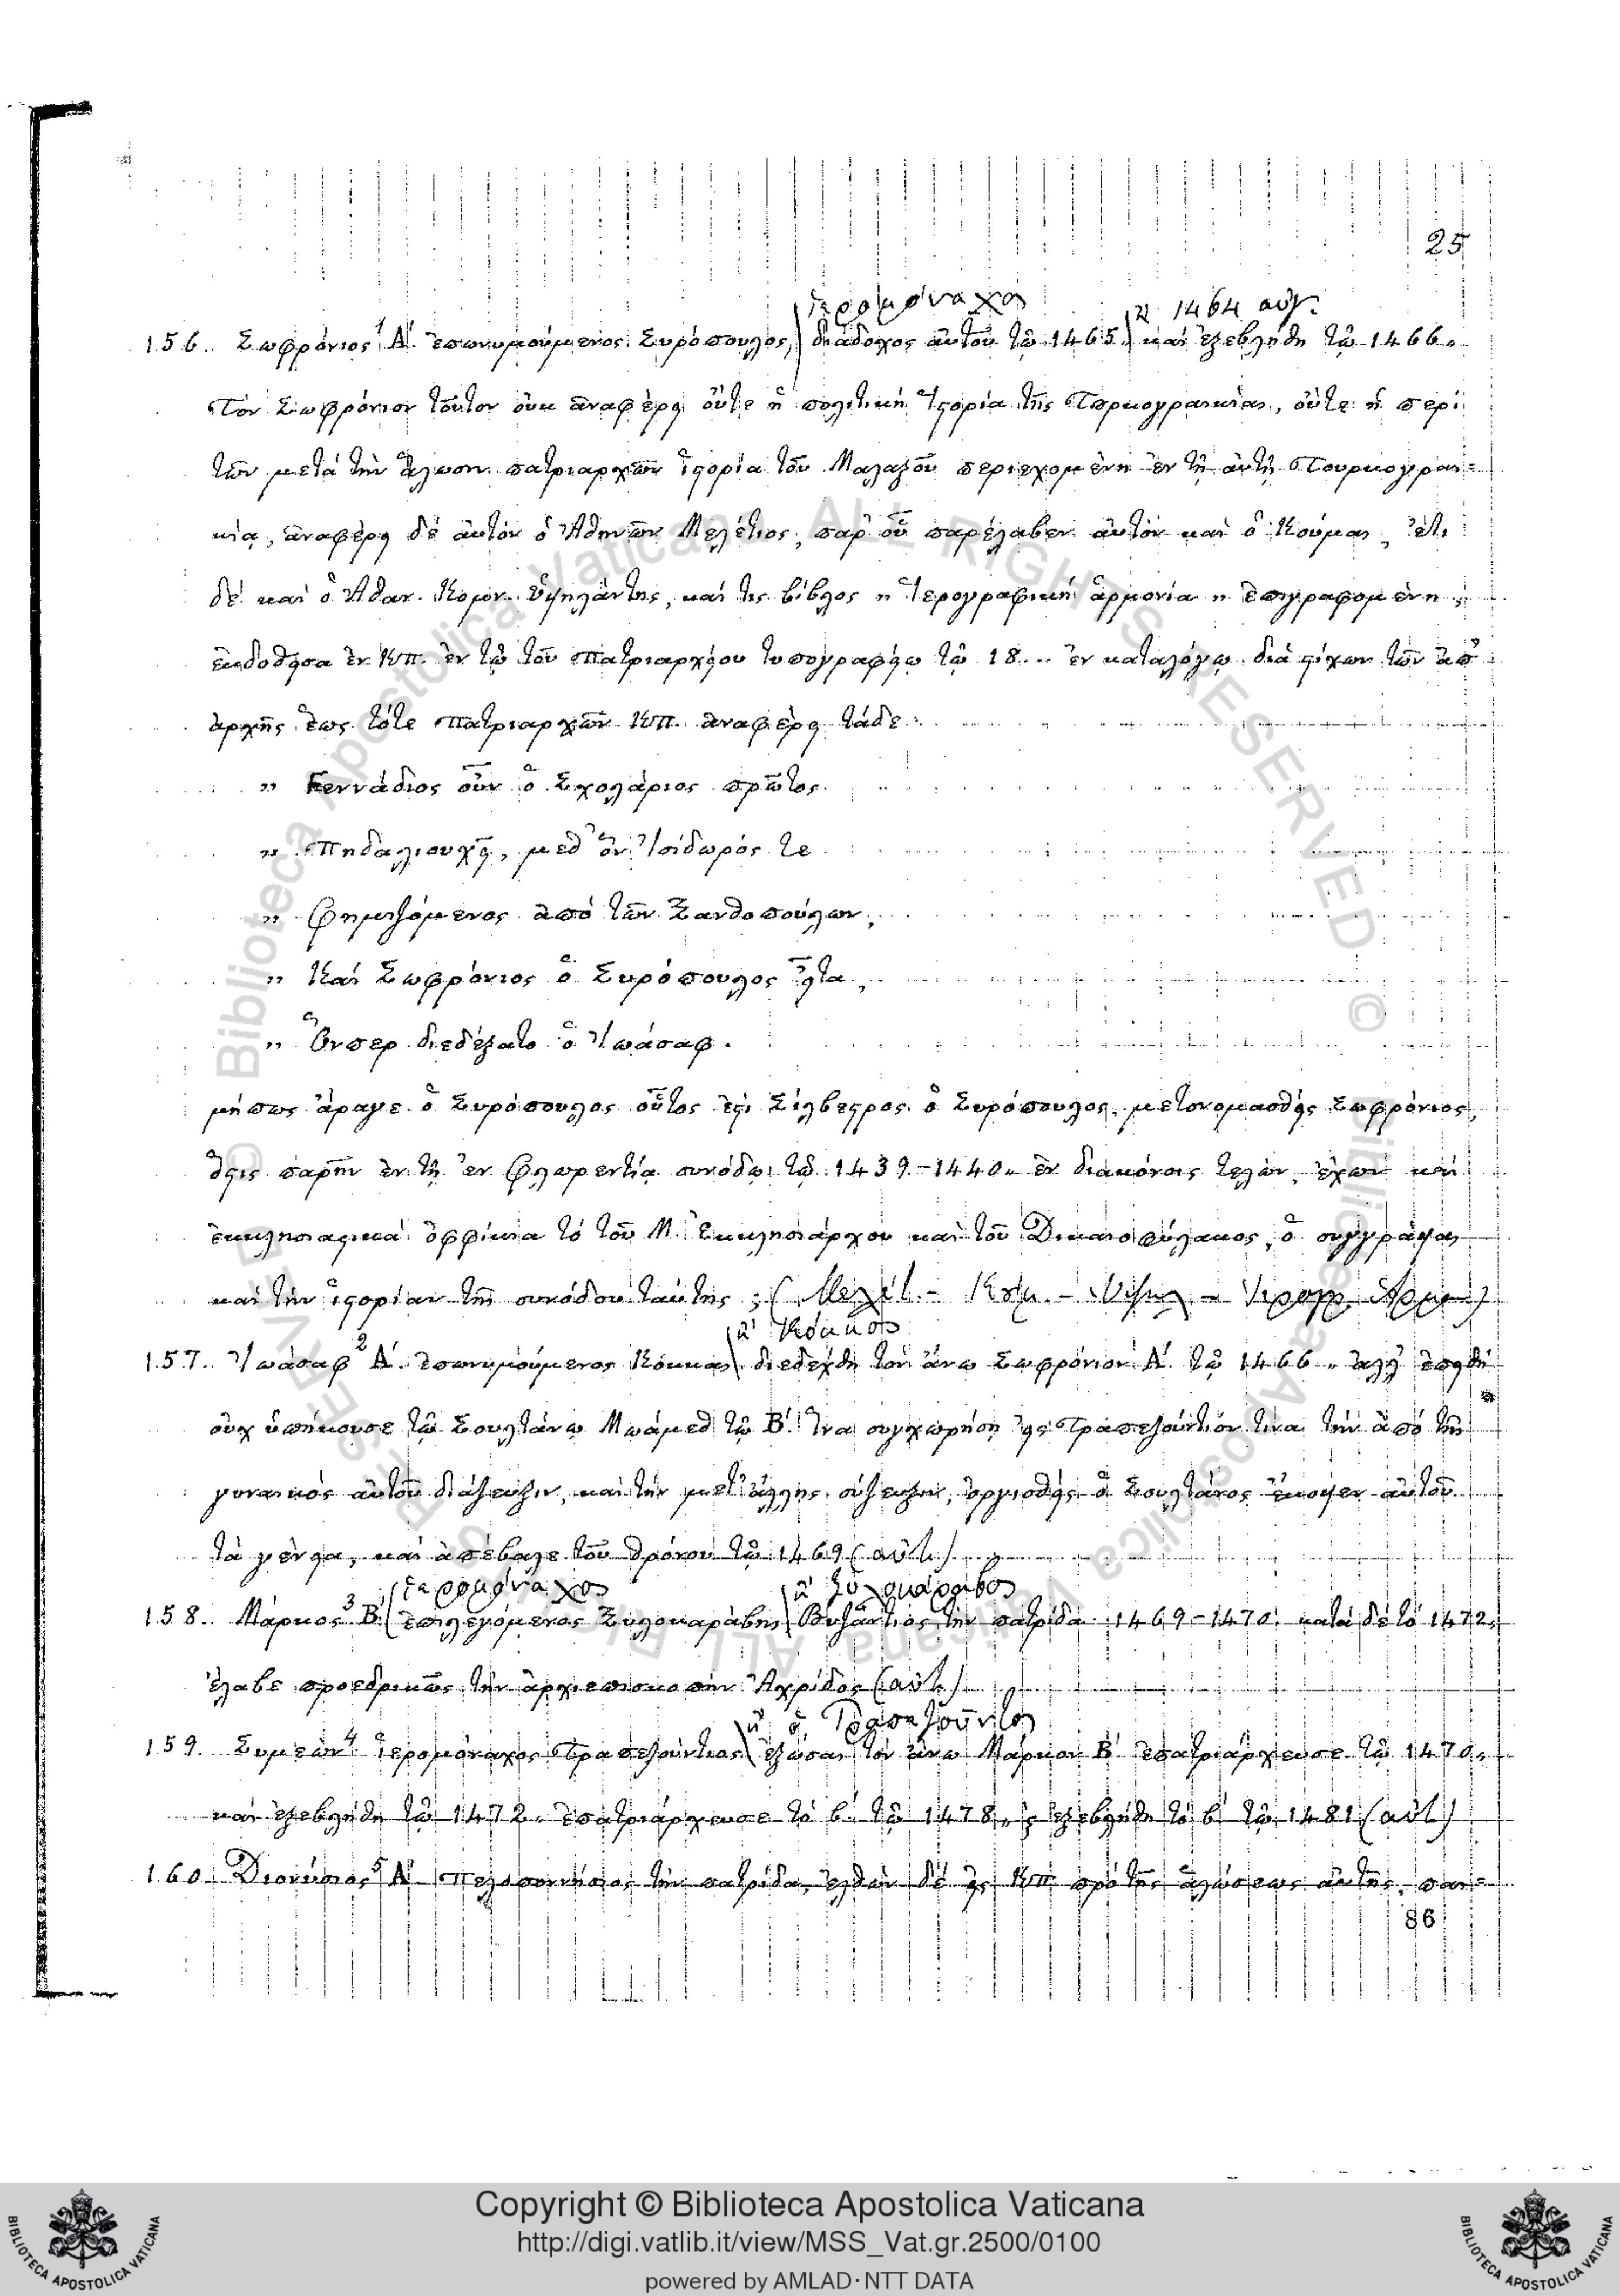 25
ἱερομόναχος
ἢ 1464 αὐγ.
156. Σωφρόνιος 1 Α΄. ἐπωνυμούμενος Συρόπουλος, διάδοχος αὐτοῦ τῷ 1465. καὶ ἐξεβλήθη τῷ 1466.
Τὸν Σωφρόνιον τοῦτον οὐκ ἀναφέρει οὔτε ἡ πολιτικὴ ἱστορία τῆς Τουρκογραικίας, οὔτε ἡ περὶ
τῶν μετὰ τὴν ἅλωσιν πατριαρχῶν ἱστορία τοῦ Μαλαξοῦ περιεχομένη ἐν τῇ αὐτῇ Τουρκογραι=
κίᾳ, ἀναφέρει δὲ αὐτὸν ὁ Ἀθηνῶν Μελέτιος, παρ' οὗ παρέλαβεν αὐτὸν καὶ ὁ Κούμας, ἔτι
δὲ καὶ ὁ Ἀθαν. Κομν. Ὑψηλάντης, καί τις βίβλος „ Ἱερογραφικὴ ἁρμονία „ ἐπιγραφομένη,
ἐκδοθεῖσα ἐν Κπ. ἐν τῷ τοῦ Πατριαρχείου τυπογραφείῳ τῷ 18... ἐν καταλόγῳ διὰ στίχων τῶν ἀπ'
ἀρχῆς ἕως τότε Πατριαρχῶν Κπ. ἀναφέρει τάδε:
„ Γεννάδιος οὖν ὁ Σχολάριος πρῶτος
„ Πηδαλιουχεῖ, μεθ' ὃν Ἰσίδωρός τε
„ Φημιζόμενος ἀπὸ τῶν Ξανθοπούλων,
„ Καὶ Σωφρόνιος ὁ Συρόπουλος εἶτα,
„ Ὅνπερ διεδέξατο ὁ Ἰωάσαφ.
μήπως ἄραγε ὁ Συρόπουλος οὗτος ἐστι Σίλβεστρος ὁ Συρόπουλος, μετονομασθεὶς Σωφρόνιος,
ὅστις παρῆν ἐν τῇ ἐν Φλωρεντίᾳ συνόδῳ τῷ 1439-1440. ἐν διακόνοις τελῶν, ἔχων καὶ
ἐκκλησιαστικὰ ὀφφίκια τὸ τοῦ Μ. Ἐκκλησιάρχου καὶ τοῦ Δικαιοφύλακος, ὁ συγγράψας
καὶ τὴν ἱστορίαν τῆς συνόδου ταύτης; (Μελέτ. - Κομ. - Ὑψηλ. - Ἱερογρ. Ἁρμ.)
ἢ Κόκκος
157. Ἰωάσαφ 2 Α΄. ἐπωνυμούμενος Κόκκας διεδέχθη τὸν ἄνω Σωφρόνιον Α΄. τῷ 1466. ἀλλ' ἐπειδὴ
οὐχ ὑπήκουσε τῷ Σουλτάνῳ Μωάμεθ τῷ Β΄. ἵνα συγχωρήσῃ εἰς Τραπεζούντιόν τινα τὴν ἀπὸ τῆς
γυναικὸς αὐτοῦ διάζευξιν, καὶ τὴν μετ' ἄλλης σύζευξιν, ὀργισθεὶς ὁ Σουλτάνος ἔκοψεν αὐτοῦ
τὰ γένεια, καὶ ἀπέβαλε τοῦ θρόνου τῷ 1469 (αὐτ.)
ἱερομόναχος
ἢ Ξυλοκάραβος
158. Μάρκος 3 Β΄ ἐπιλεγόμενος Ξυλοκαράβης Βυζάντιος τὴν πατρίδα 1469-1470. κατὰ δὲ τὸ 1472,
ἔλαβε προεδρικῶς τὴν ἀρχιεπισκοπὴν Ἀχρίδος (αὐτ.)
ἢ ὁ Τραπεζοῦντος
159. Συμεὼν 4 ἱερομόναχος Τραπεζούντιος ἐξώσας τὸν ἄνω Μάρκον Β΄ ἐπατριάρχευσε τῷ 1470.
καὶ ἐξεβλήθη τῷ 1472. ἐπατριάρχευσε τὸ β΄. τῷ 1478. καὶ ἐξεβλήθη τὸ β΄ τῷ 1481 (αὐτ.)
160. Διονύσιος 5 Α΄ Πελοποννήσιος τὴν πατρίδα, ἐλθὼν δὲ εἰς Κπ πρὸ τῆς ἁλώσεως αὐτῆς, παι=
86
© Biblioteca Apostolica Vaticana ALL RIGHTS RESERVED ©
Copyright © Biblioteca Apostolica Vaticana
http://digi.vatlib.it/view/MSS_Vat.gr.2500/0100
powered by AMLAD·NTT DATA
BIBLIOTECA APOSTOLICA VATICANA
BIBLIOTECA APOSTOLICA VATICANA